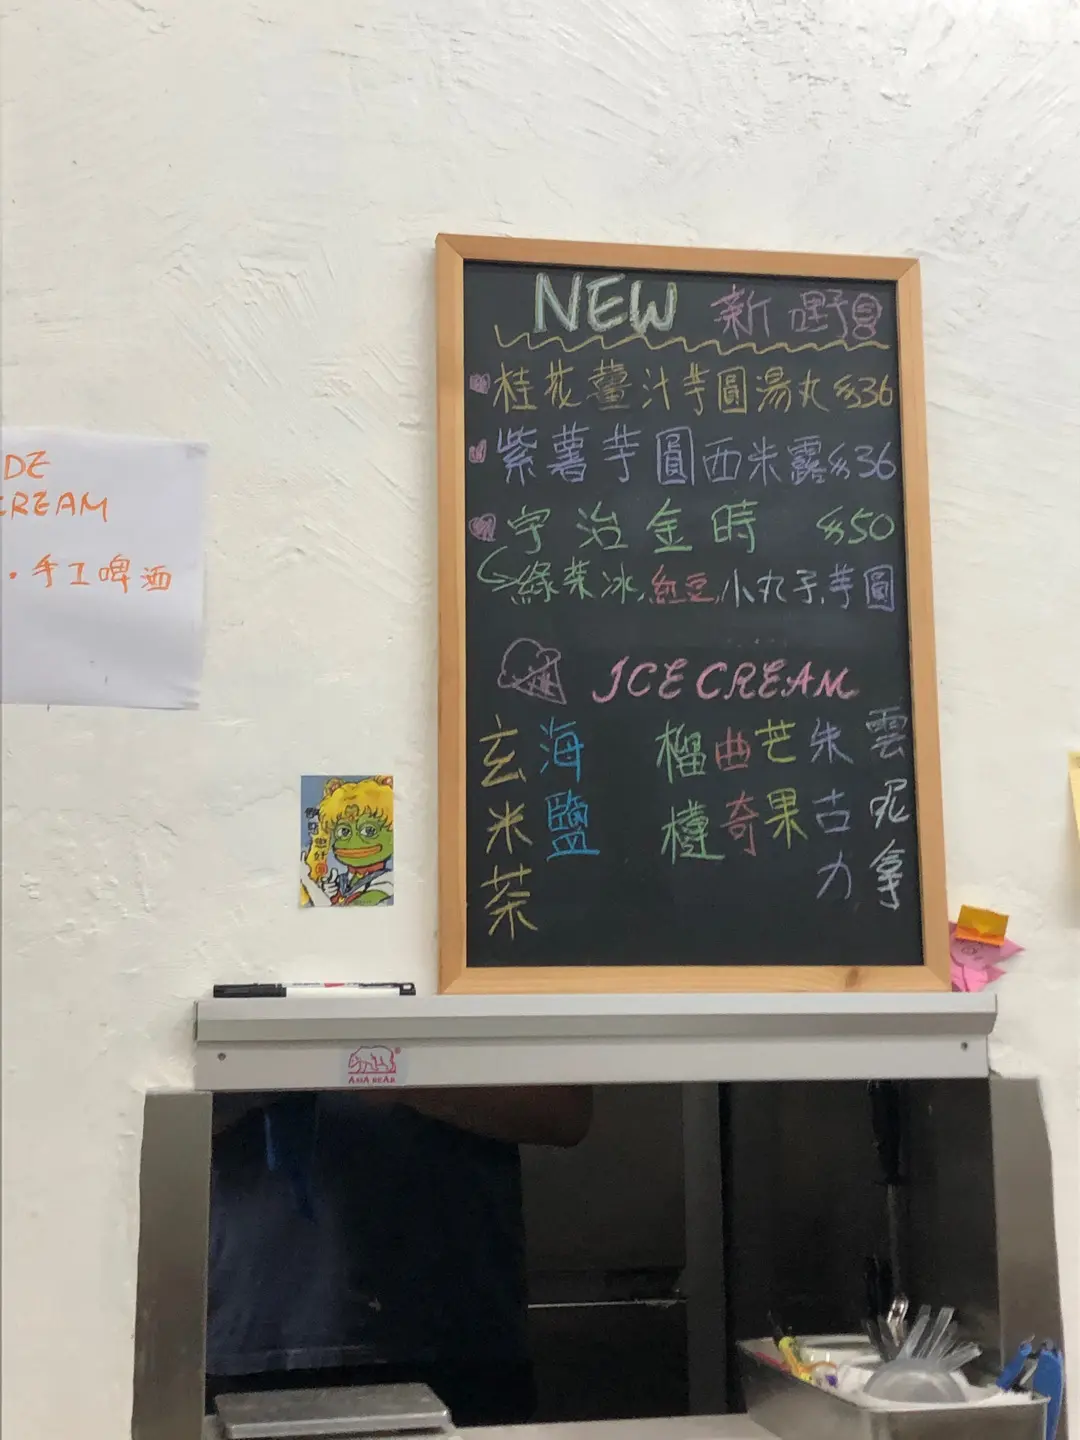 NEW 新嘢
桂花薑汁芋圓湯丸 $36
紫薯芋圓西米露 $36
宇治金時 $50
綠茶冰,紅豆,小丸子,芋圓
ICE CREAM
雲呢拿
朱古力
芒果
曲奇
榴槤
海鹽
玄米茶
DE
CREAM
·手工啤酒
ASIA BEAR